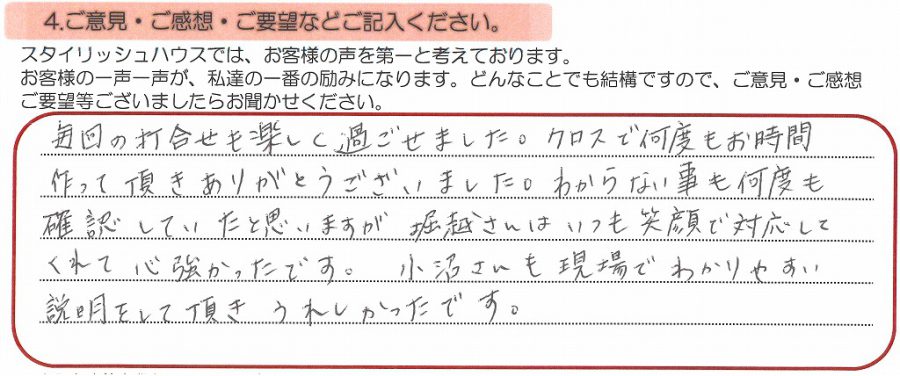 4.ご意見・ご感想・ご要望などご記入ください。
スタイリッシュハウスでは、お客様の声を第一と考えております。
お客様の一声一声が、私達の一番の励みになります。どんなことでも結構ですので、ご意見・ご感想
ご要望等ございましたらお聞かせください。
毎回の打合せも楽しく過ごせました。クロスで何度もお時間
作って頂きありがとうございました。わからない事も何度も
確認していたと思いますが 堀越さんはいつも笑顔で対応して
くれて心強かったです。 小沼さんも現場でわかりやすい
説明をして頂きうれしかったです。